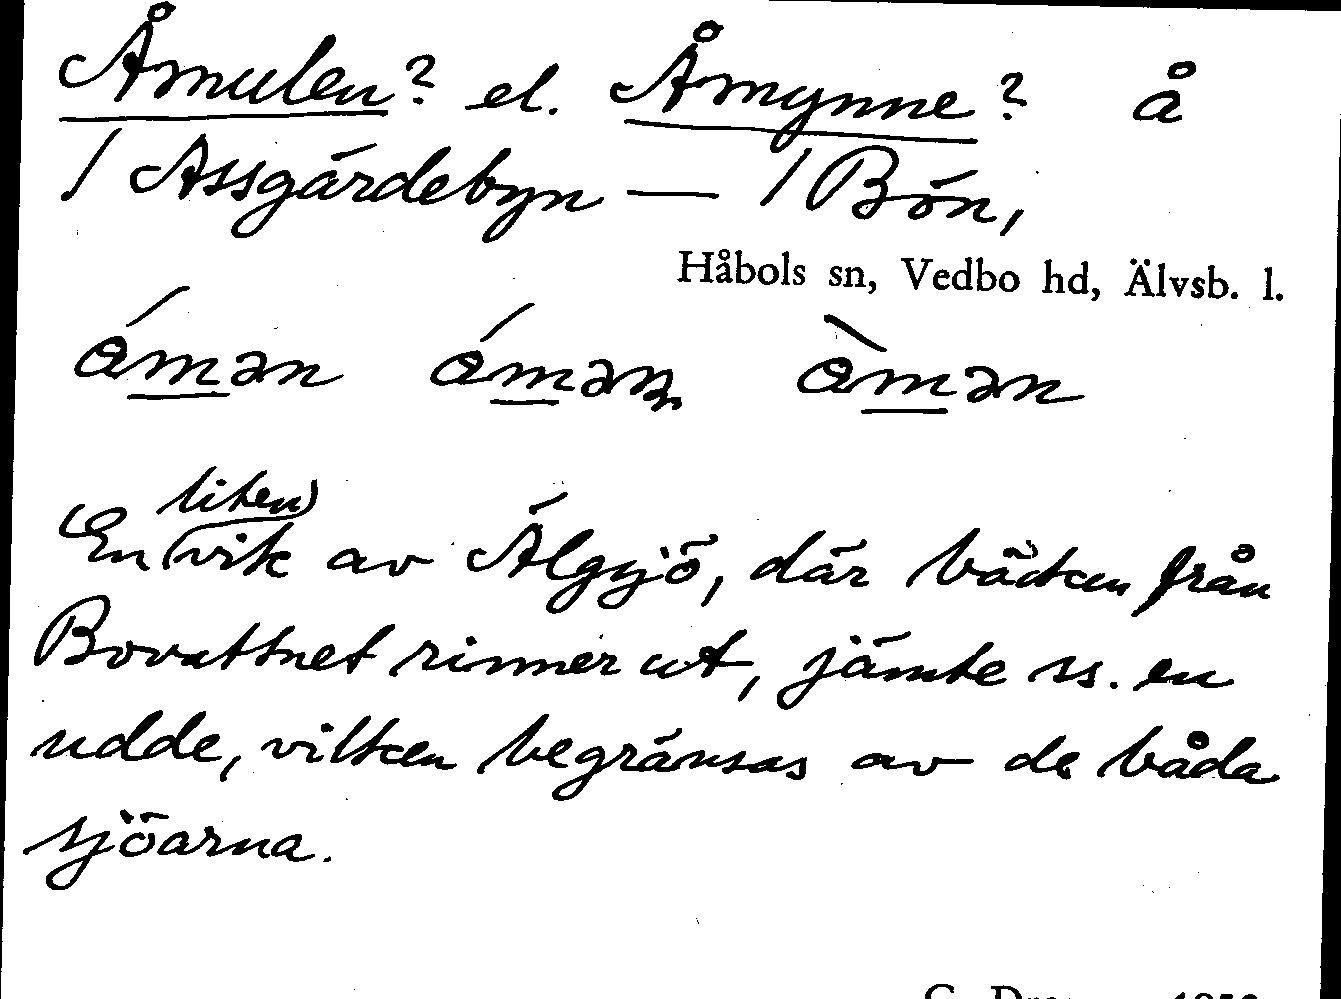 Åmulen? el. Åmynne? å
/ Assgärdebyn — / Bön,
Håbols sn, Vedbo hd, Älvsb. l.
ó̀mən ómən òmən
En liten vik av Älgsjö, där bäcken från
Bovattnet rinner ut, jämte ss. en
udde, vilken begränsas av de båda
sjöarna.